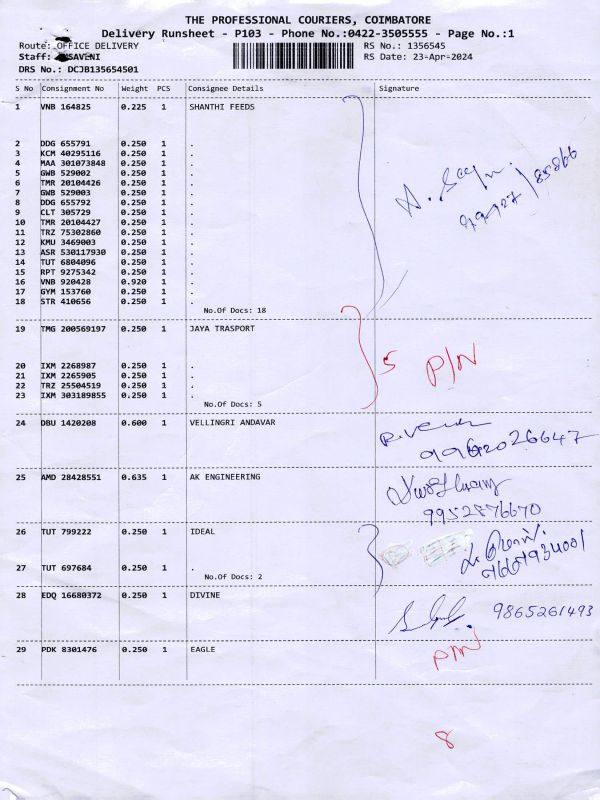 THE PROFESSIONAL COURIERS, COIMBATORE
Delivery Runsheet - P103 - Phone No.:0422-3505555 - Page No.:1
Route: OFFICE DELIVERY
RS No.: 1356545
Staff: SAVENI
RS Date: 23-Apr-2024
DRS No.: DCJB135654501
S No Consignment No Weight PCS Consignee Details Signature
1 VNB 164825 0.225 1 SHANTHI FEEDS
2 DDG 655791 0.250 1 .
3 KCM 40295116 0.250 1 .
4 MAA 301073848 0.250 1 .
5 GWB 529002 0.250 1 .
6 TMR 20104426 0.250 1 .
7 GWB 529003 0.250 1 .
8 DDG 655792 0.250 1 .
9 CLT 305729 0.250 1 .
10 TMR 20104427 0.250 1 .
11 TRZ 75302860 0.250 1 .
12 KMU 3469003 0.250 1 .
13 ASR 530117930 0.250 1 .
14 TUT 6804096 0.250 1 .
15 RPT 9275342 0.250 1 .
16 VNB 920428 0.920 1 .
17 GYM 153760 0.250 1 .
18 STR 410656 0.250 1 .
No.Of Docs: 18
19 TMG 200569197 0.250 1 JAYA TRASPORT
20 IXM 2268987 0.250 1 .
5 P/N
21 IXM 2265905 0.250 1 .
22 TRZ 25504519 0.250 1 .
23 IXM 303189855 0.250 1 .
No.Of Docs: 5
24 DBU 1420208 0.600 1 VELLINGRI ANDAVAR
25 AMD 28428551 0.635 1 AK ENGINEERING
9952876670
26 TUT 799222 0.250 1 IDEAL
27 TUT 697684 0.250 1 .
No.Of Docs: 2
28 EDQ 16680372 0.250 1 DIVINE
9865261493
29 PDK 8301476 0.250 1 EAGLE
P/N
8